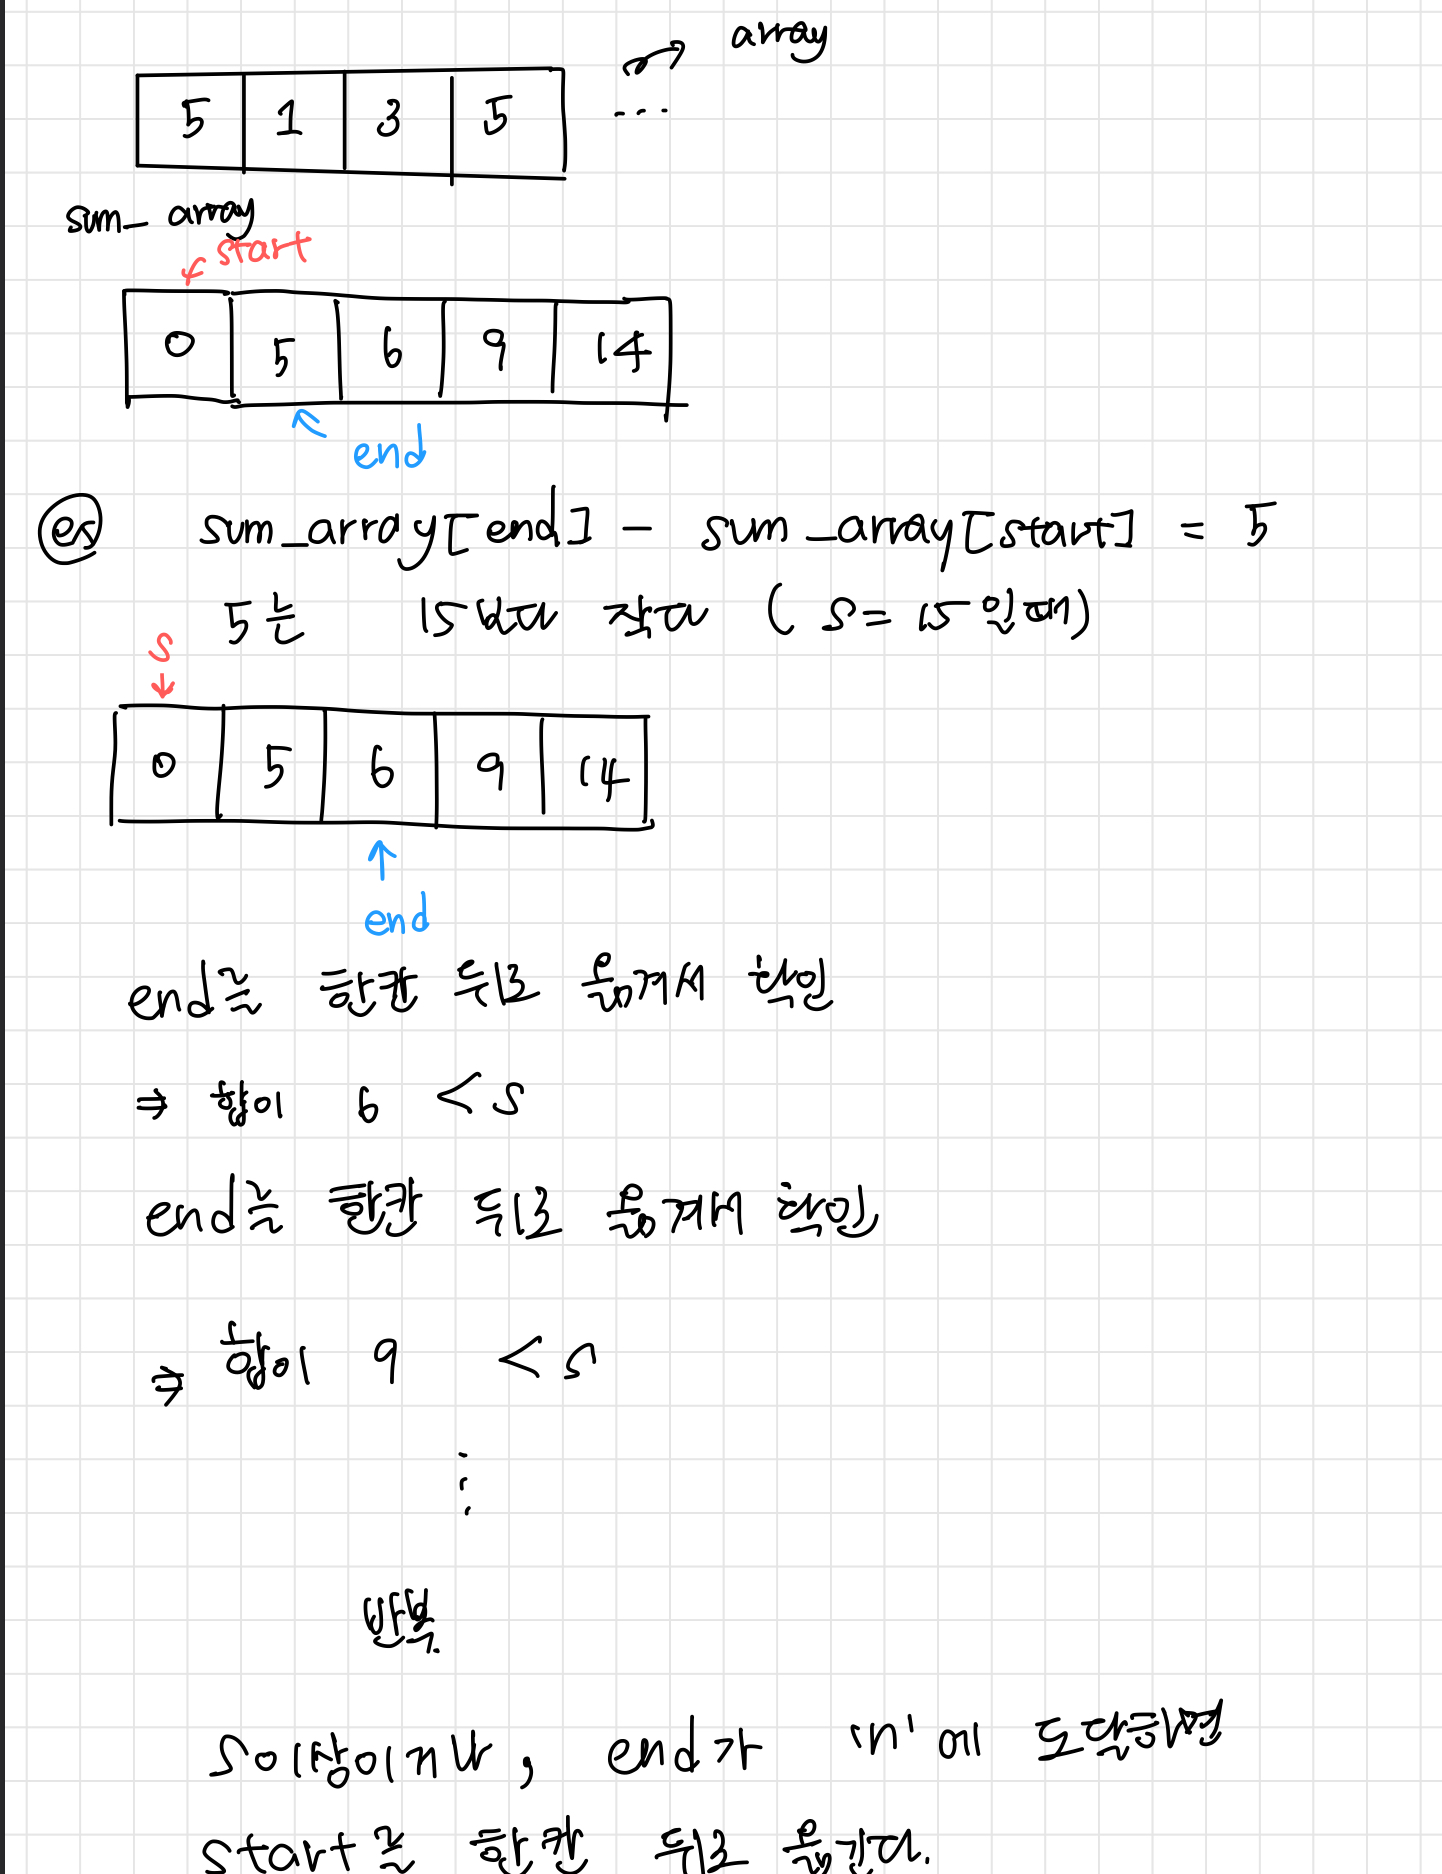 array
5 1 3 5 ...
sum_array
start
0 5 6 9 14
end
ex sum_array[end] - sum_array[start] = 5
5는 15보다 작다 (S=15일때)
S
0 5 6 9 14
end
end를 한칸 뒤로 옮겨서 확인
⇒ 합이 6 < S
end를 한칸 뒤로 옮겨서 확인
⇒ 합이 9 < S
⋮
반복
S이상이거나, end가 'n'에 도달하면
start를 한칸 뒤로 옮긴다.